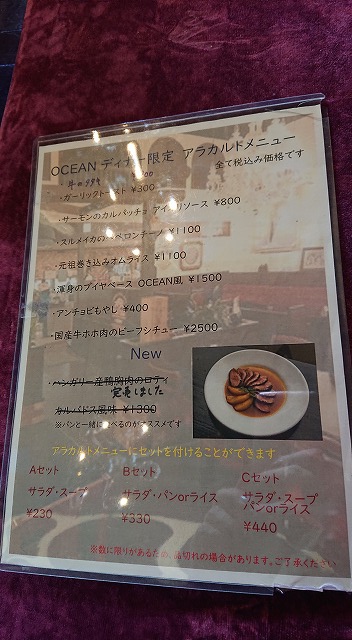 OCEAN ディナー限定 アラカルドメニュー
全て税込み価格です
・牛の
・ガーリックトースト ¥300
・サーモンのカルパッチョ アイオリソース ¥800
・スルメイカのペペロンチーノ ¥1100
・元祖巻き込みオムライス ¥1100
・渾身のブイヤベース OCEAN風 ¥1500
・アンチョビもやし ¥400
・国産牛ホホ肉のビーフシチュー ¥2500
New
・ハンガリー産鴨胸肉のロティ
完売しました
カルバドス風味 ¥1300
※パンと一緒に食べるのがオススメです
アラカルドメニューにセットを付けることができます
Aセット
サラダ・スープ
¥230
Bセット
サラダ・パンorライス
¥330
Cセット
サラダ・スープ
パンorライス
¥440
※数に限りがあるため、品切れの場合があります。ご了承ください